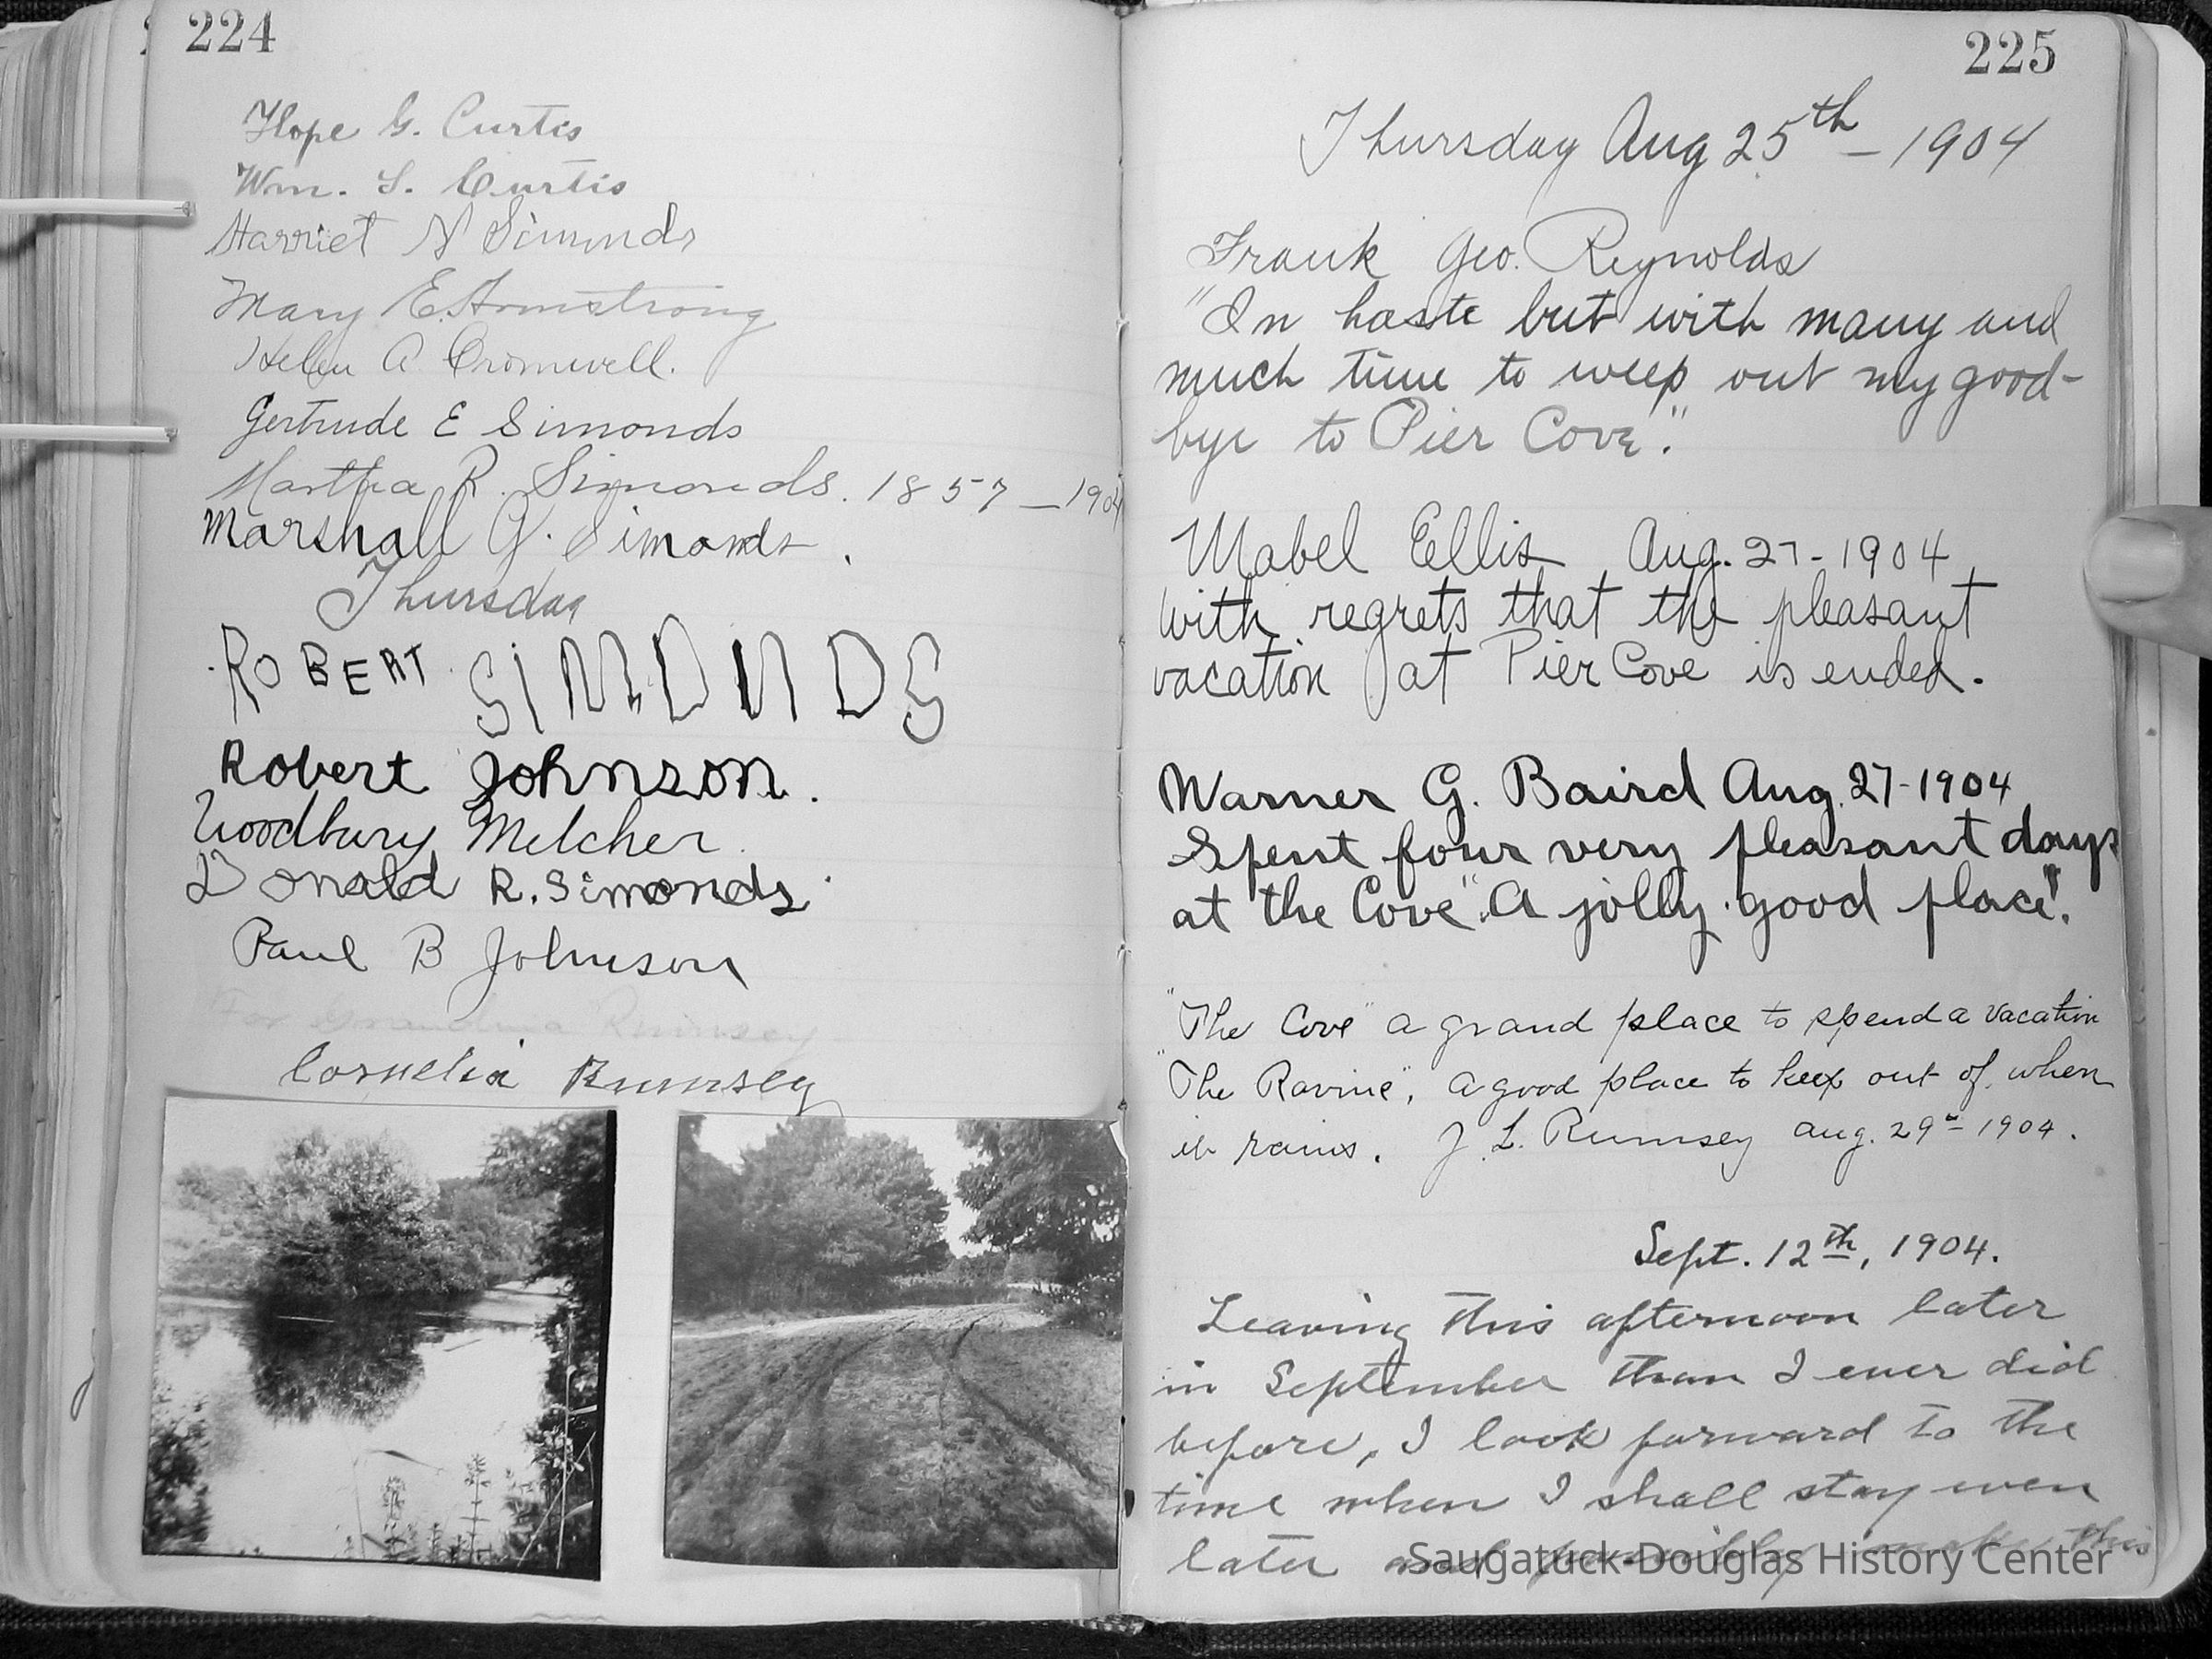 224
Hope G. Curtis
Wm. S. Curtis
Harriet N Simonds
Mary E. Armstrong
Helen A Cromwell.
Gertrude E Simonds
Martha R. Simonds. 1857—1904
Marshall G. Simonds.
Thursday
ROBERT SIMONDS
Robert Johnson.
Woodbury Melcher.
Donald R. Simonds.
Paul B Johnson
For Grandma Rumsey
Cornelia Rumsey
225
Thursday Aug 25th - 1904
Frank Geo. Reynolds
"In haste but with many and
much time to weep out my good-
bye to Pier Cove".
Mabel Ellis Aug. 27-1904
with regrets that the pleasant
vacation at Pier Cove is ended.
Warner G. Baird Aug. 27-1904
Spent four very pleasant days
at the Cove "A jolly good place".
"The Cove" a grand place to spend a vacation
"The Ravine", a good place to keep out of, when
it rains. J. L. Rumsey Aug. 29th 1904.
Sept. 12th, 1904.
Leaving this afternoon later
in September than I ever did
before, I look forward to the
time when I shall stay even
later and possibly make this
Saugatuck-Douglas History Center